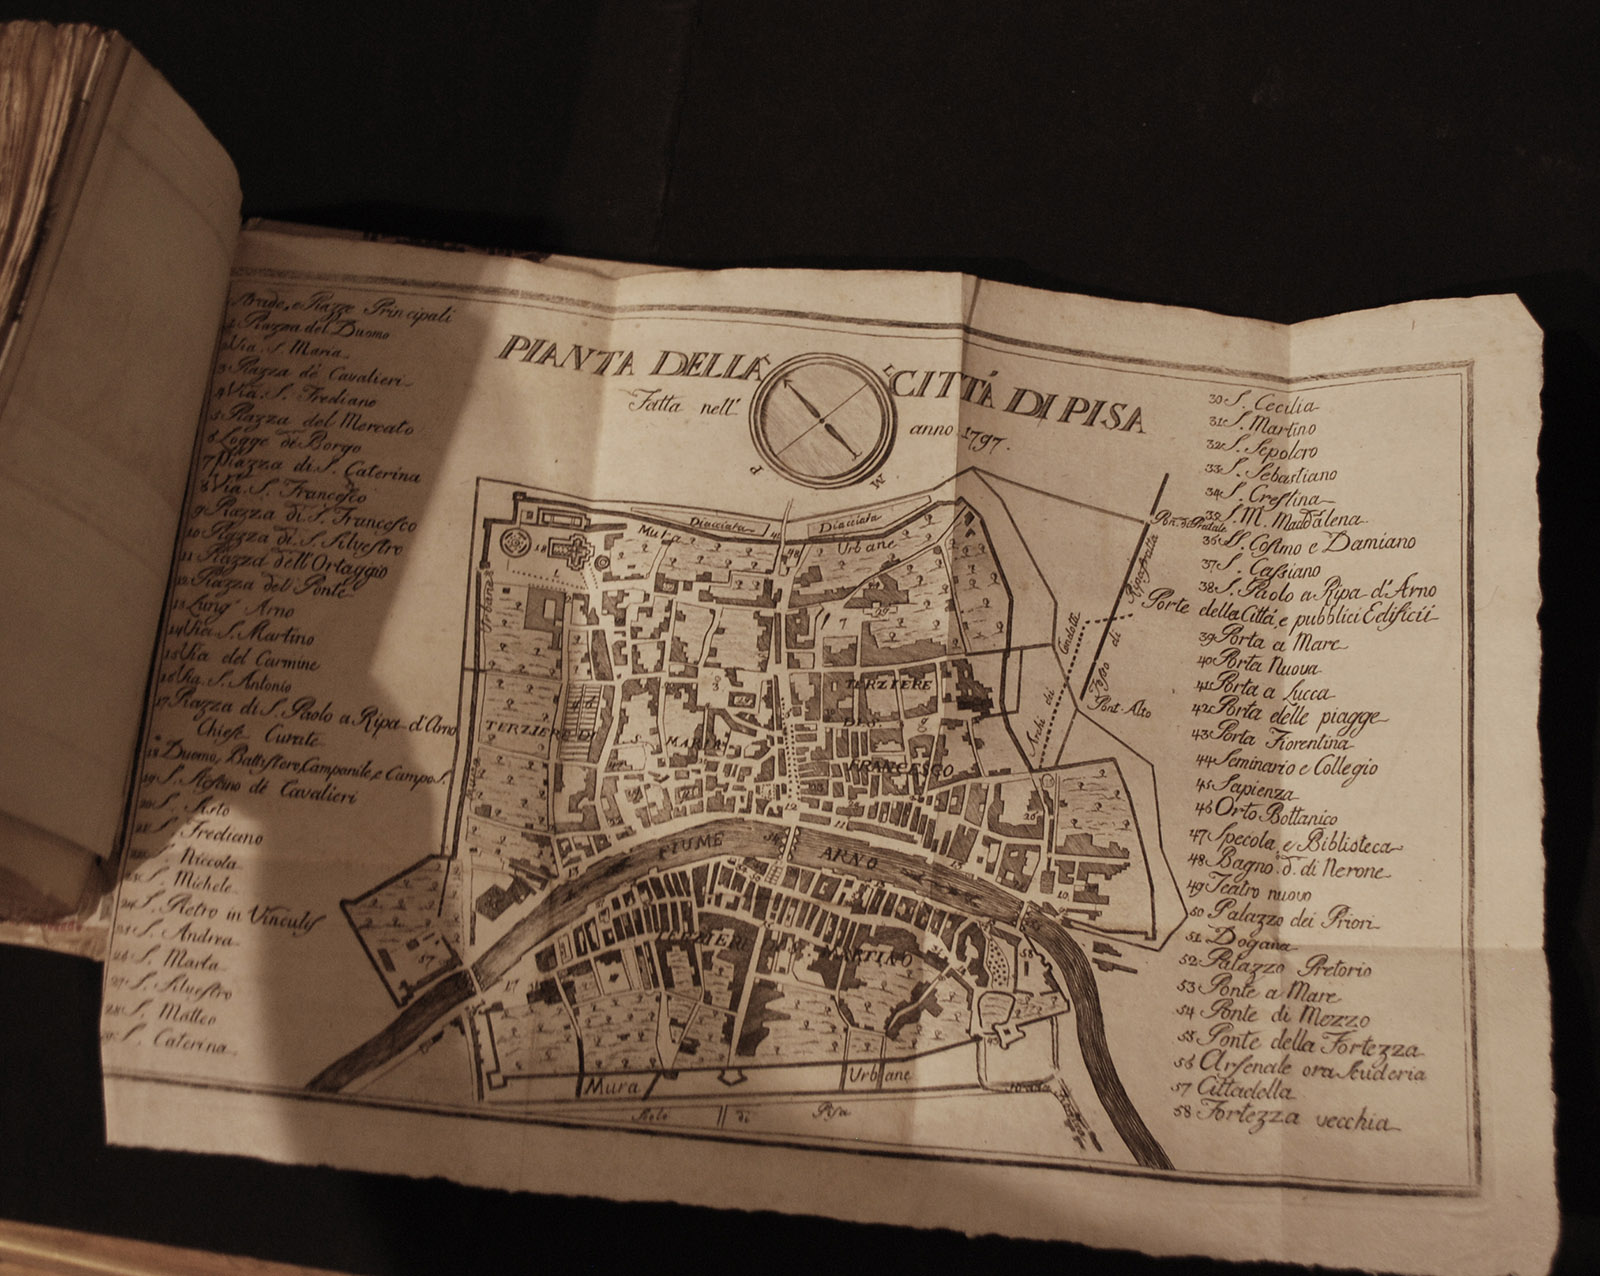 PIANTA DELLA CITTÁ DI PISA
Fatta nell' anno 1797.
Strade, e Piazze Principali
1 Piazza del Duomo
2 Via S. Maria
3 Piazza de Cavalieri
4 Via S. Frediano
5 Piazza del Mercato
6 Logge di Borgo
7 Piazza di S. Caterina
8 Via S. Francesco
9 Piazza di S. Francesco
10 Piazza di S. Silvestro
11 Piazza dell'Ortaggio
12 Piazza del Ponte
13 Lung' Arno
14 Via S. Martino
15 Via del Carmine
16 Via S. Antonio
17 Piazza di S. Paolo a Ripa d'Arno
Chiese Curate
18 Duomo, Battistero, Campanile, e Campo S.
19 S. Stefano de Cavalieri
20 S. Sisto
21 S. Frediano
22 S. Niccola
23 S. Michele
24 S. Pietro in Vinculis
25 S. Andrea
26 S. Marta
27 S. Silvestro
28 S. Matteo
29 S. Caterina
30 S. Cecilia
31 S. Martino
32 S. Sepolcro
33 S. Sebastiano
34 S. Crestina
35 S. M. Maddalena
36 S. Cosimo e Damiano
37 S. Cassiano
38 S. Paolo a Ripa d'Arno
Porte della Cittá, e pubblici Edificii
39 Porta a Mare
40 Porta Nuova
41 Porta a Lucca
42 Porta delle piagge
43 Porta Fiorentina
44 Seminario e Collegio
45 Sapienza
46 Orto Bottanico
47 Specola, e Biblioteca
48 Bagno d. di Nerone
49 Teatro nuovo
50 Palazzo dei Priori
51 Dogana
52 Palazzo Pretorio
53 Ponte a Mare
54 Ponte di Mezzo
55 Ponte della Fortezza
56 Arsenale ora Scuderia
57 Cittadella
58 Fortezza vecchia
L
M
P
T
Diacciata
Diacciata
Mura
Urbane
Mura
Urbane
TERZIERE DI
S. MARIA
TERZIERE
DI S.
FRANCESCO
FIUME ARNO
TERZIERE DI S. MARTINO
Mura Urbane
di Pisa
Archi di Condotti
Fosso di Ripafratta
Pont. Alto